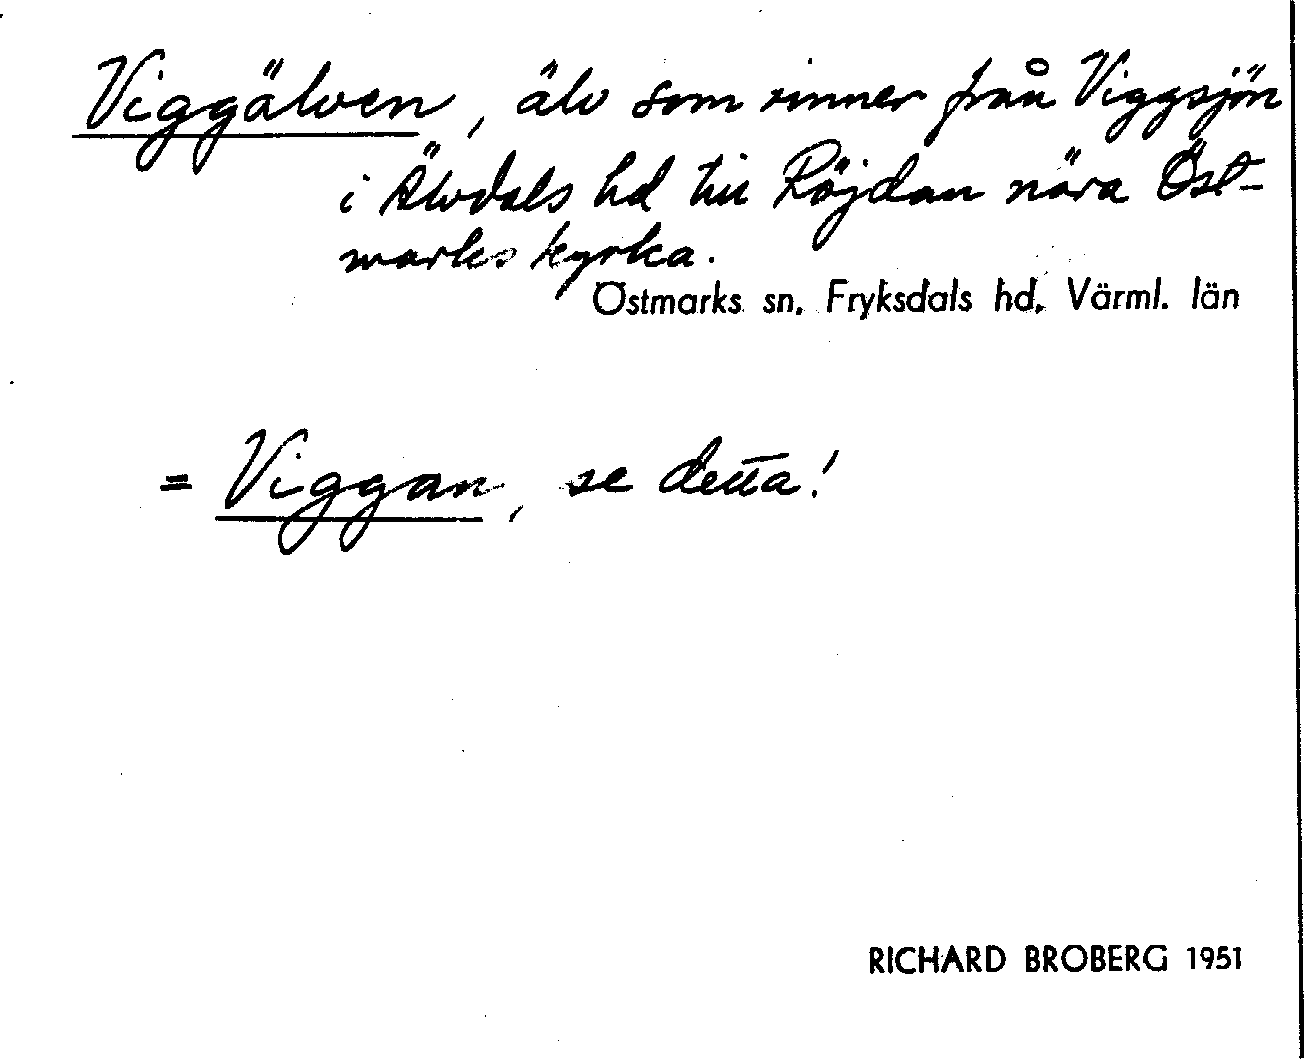 Viggälven, älv som rinner från Viggsjön
i Älvdals hd till Röjdan nära Öst-
marks kyrka.
Östmarks sn, Fryksdals hd, Värml. län
= Viggan, se detta!
RICHARD BROBERG 1951